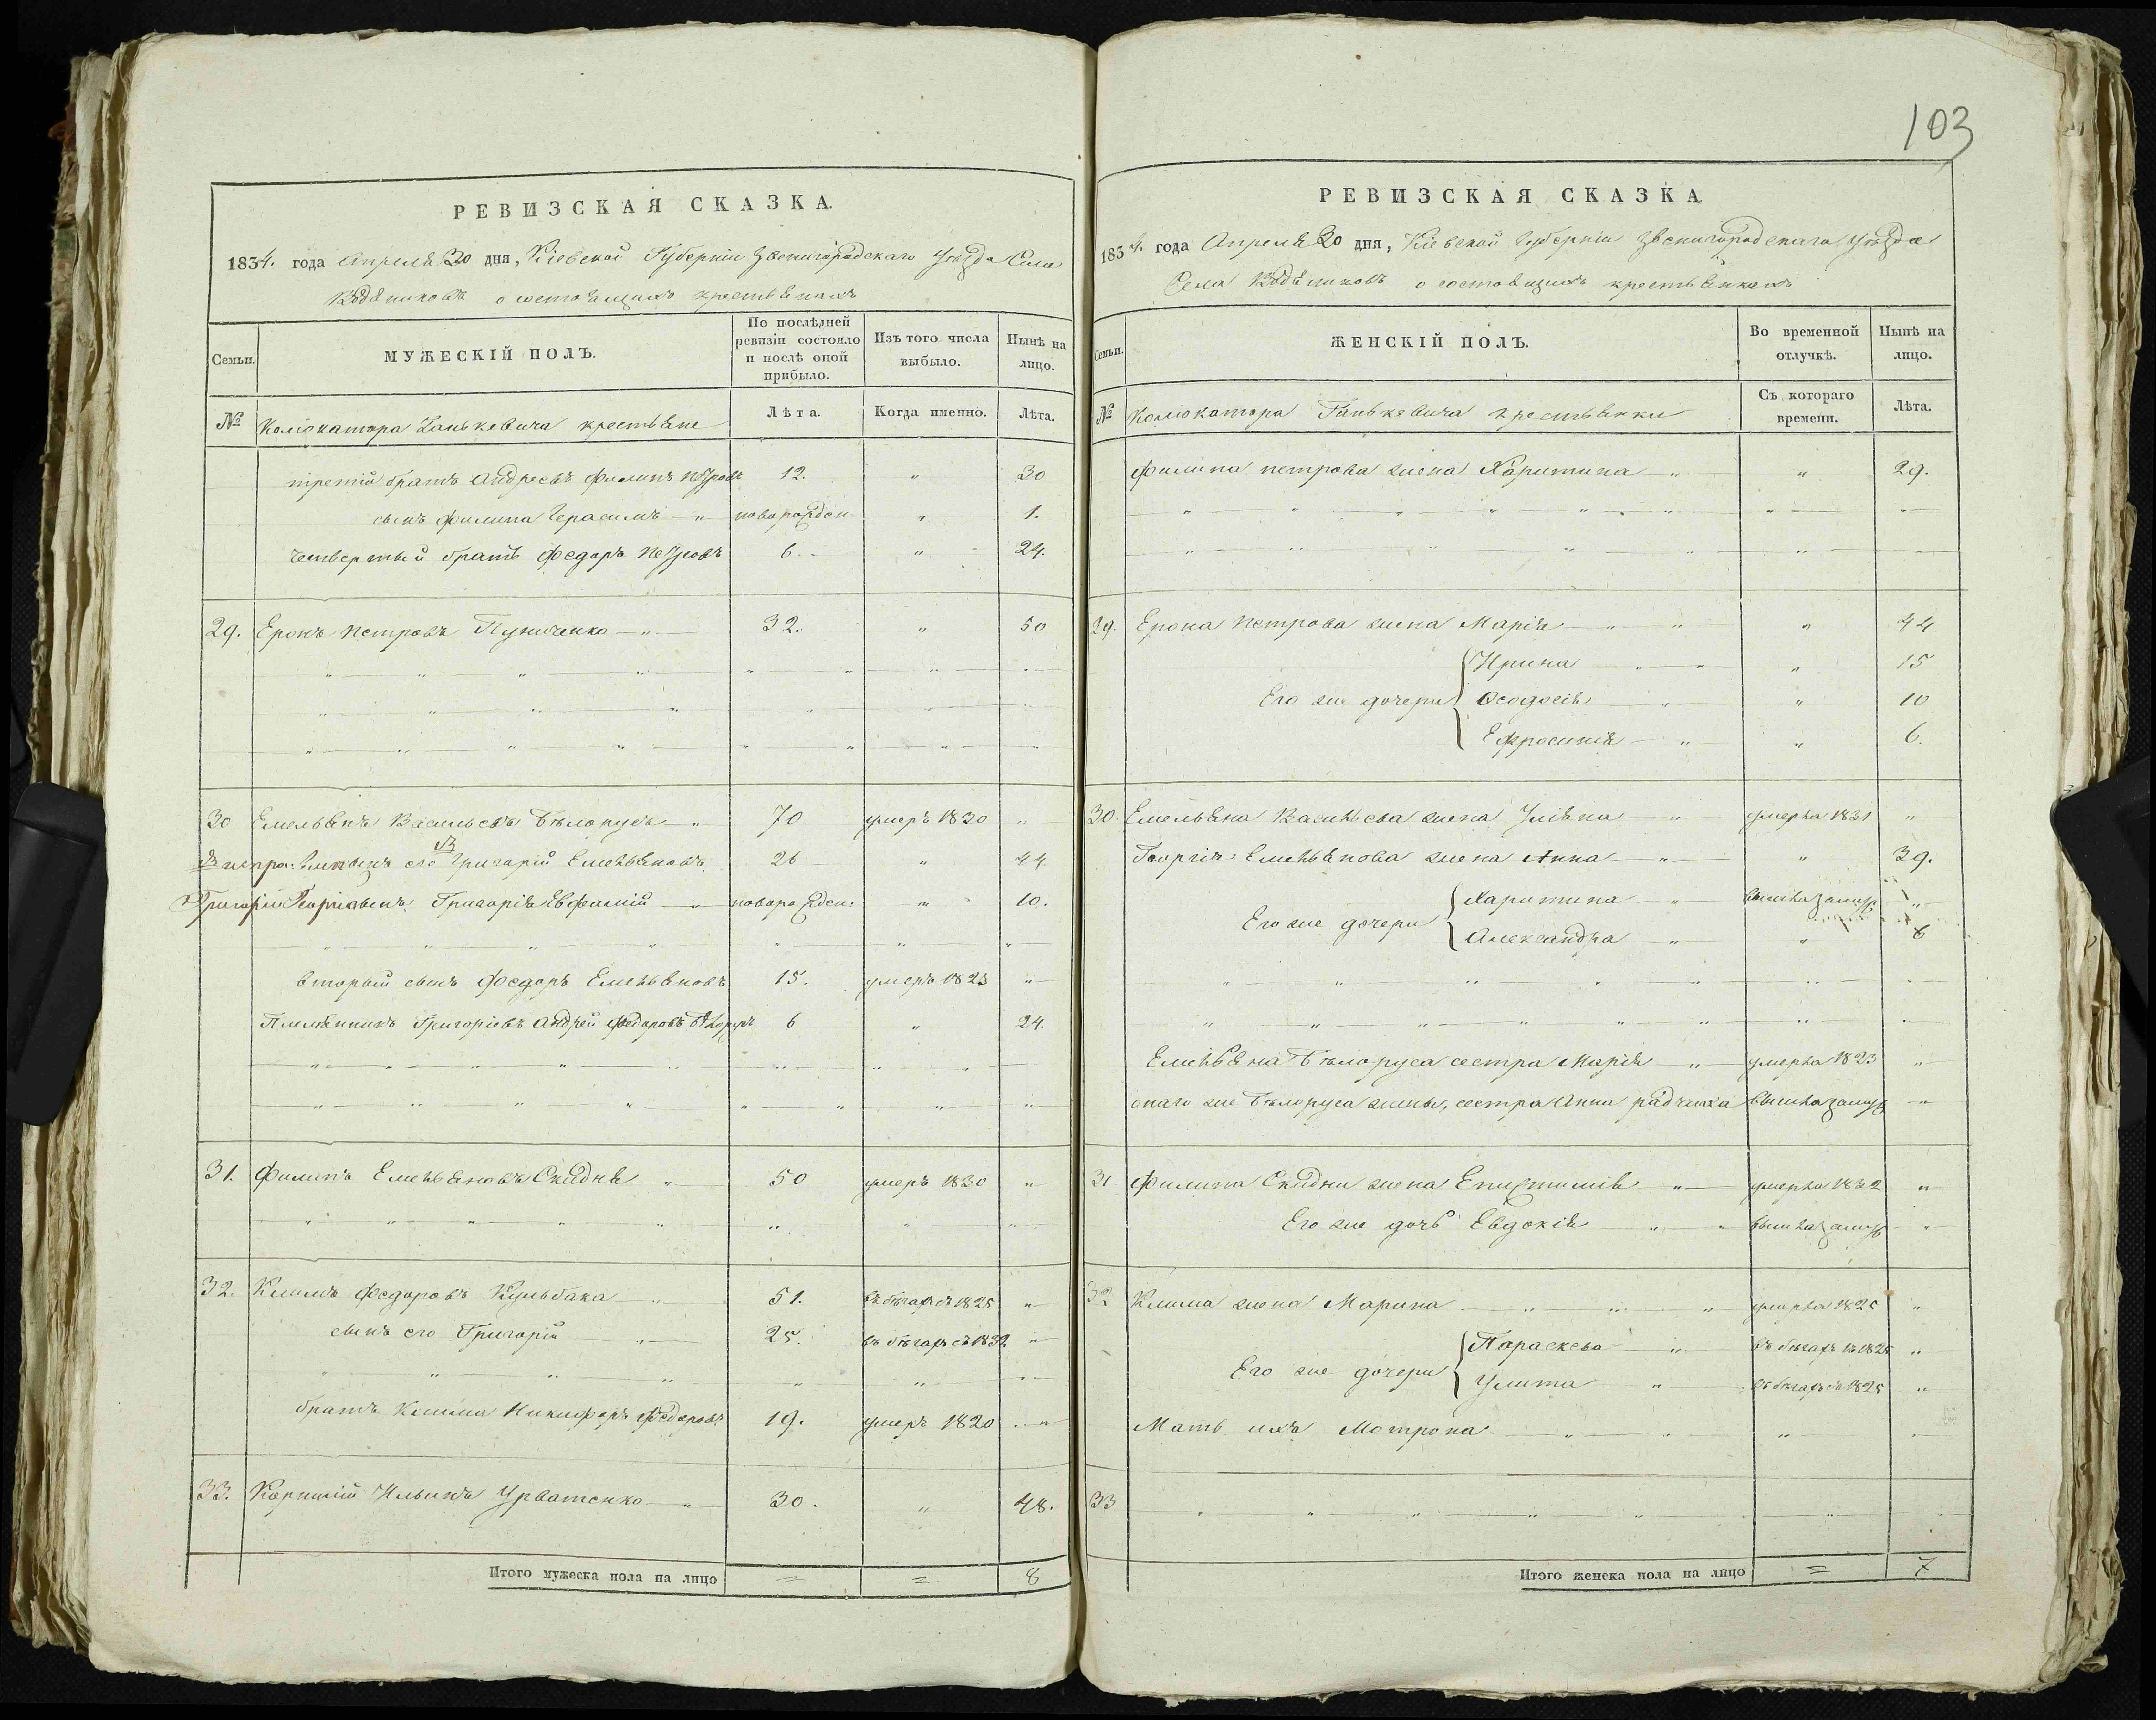 103
РЕВИЗСКАЯ СКАЗКА
1834. года Апреля 20 дня, Кіевской Губерніи Звенигородскаго Уѣзда Села
Водяниковъ о состоящихъ крестьянахъ
Семьи.
МУЖЕСКІЙ ПОЛЪ.
По послѣдней ревизіи состояло и послѣ оной прибыло.
Изъ того числа выбыло.
Нынѣ на лицо.
№
Колюкатора крестьяне
Лѣта.
Когда именно.
Лѣта.
третій братъ Андреевъ Филипъ Петровъ 12. " 30
сынъ Филипа Герасимъ " новорожден " 1.
четвертый братъ Федоръ Петровъ 6 " 24.
29. Ерокъ Петровъ " 32. " 50
30 Емельянъ Васильевъ Бѣлорусъ " 70 умеръ 1830 "
сынъ его Григорій Емельяновъ 26 " 44
Григорій Георгія сынъ Григорія Евфимій " новорожден. " 10.
вторый сынъ Федоръ Емельяновъ 15. умеръ 1823 "
Племянникъ Григоріевъ Андрей Федоровъ 6 " 24.
31. Филипъ Емельяновъ Скидня " 50 умеръ 1830 "
32. Климъ Федоровъ Кульбака " 51. въ бѣгахъ съ 1825 "
сынъ его Григорій " 25. въ бѣгахъ съ 1832 "
братъ Клима Никифоръ Федоровъ 19. умеръ 1820 "
33. Корнилій Ильинъ Урватенко " 30. " 48.
Итого мужеска пола на лицо = = 8
РЕВИЗСКАЯ СКАЗКА
1834. года Апреля 20 дня, Кіевской Губерніи Звенигородскаго Уѣзда
Села Водяниковъ о состоящихъ крестьянкахъ
Семьи.
ЖЕНСКІЙ ПОЛЪ.
Во временной отлучкѣ.
Нынѣ на лицо.
№
Колюкатора крестьянки
Съ котораго времени.
Лѣта.
Филипа Петрова жена Харитина " " 29.
29. Ерока Петрова жена Марія " " 44
Его же дочери { Ирина " " 15
Феодосія " " 10
Ефросинія " " 6.
30. Емельяна Васильева жена Уліяна " умерла 1831 "
Георгія Емельянова жена Анна " " 39.
Его же дочери { Харитина " вышла замуж "
Александра " " 6
Емельяна Бѣлоруса сестра Марія " умерла 1823 "
онаго же Бѣлоруса жены, сестра Анна вышла замуж "
31 Филипа Скидни жена Епистимія " умерла 1832 "
Его же дочь Евдокія " вышла замуж "
32 Клима жена Марина " умерла 1825 "
Его же дочери { Параскева " въ бѣгахъ съ 1825 "
Улита " въ бѣгахъ съ 1825 "
Мать ихъ Мотрона " "
33
Итого женска пола на лицо = 7